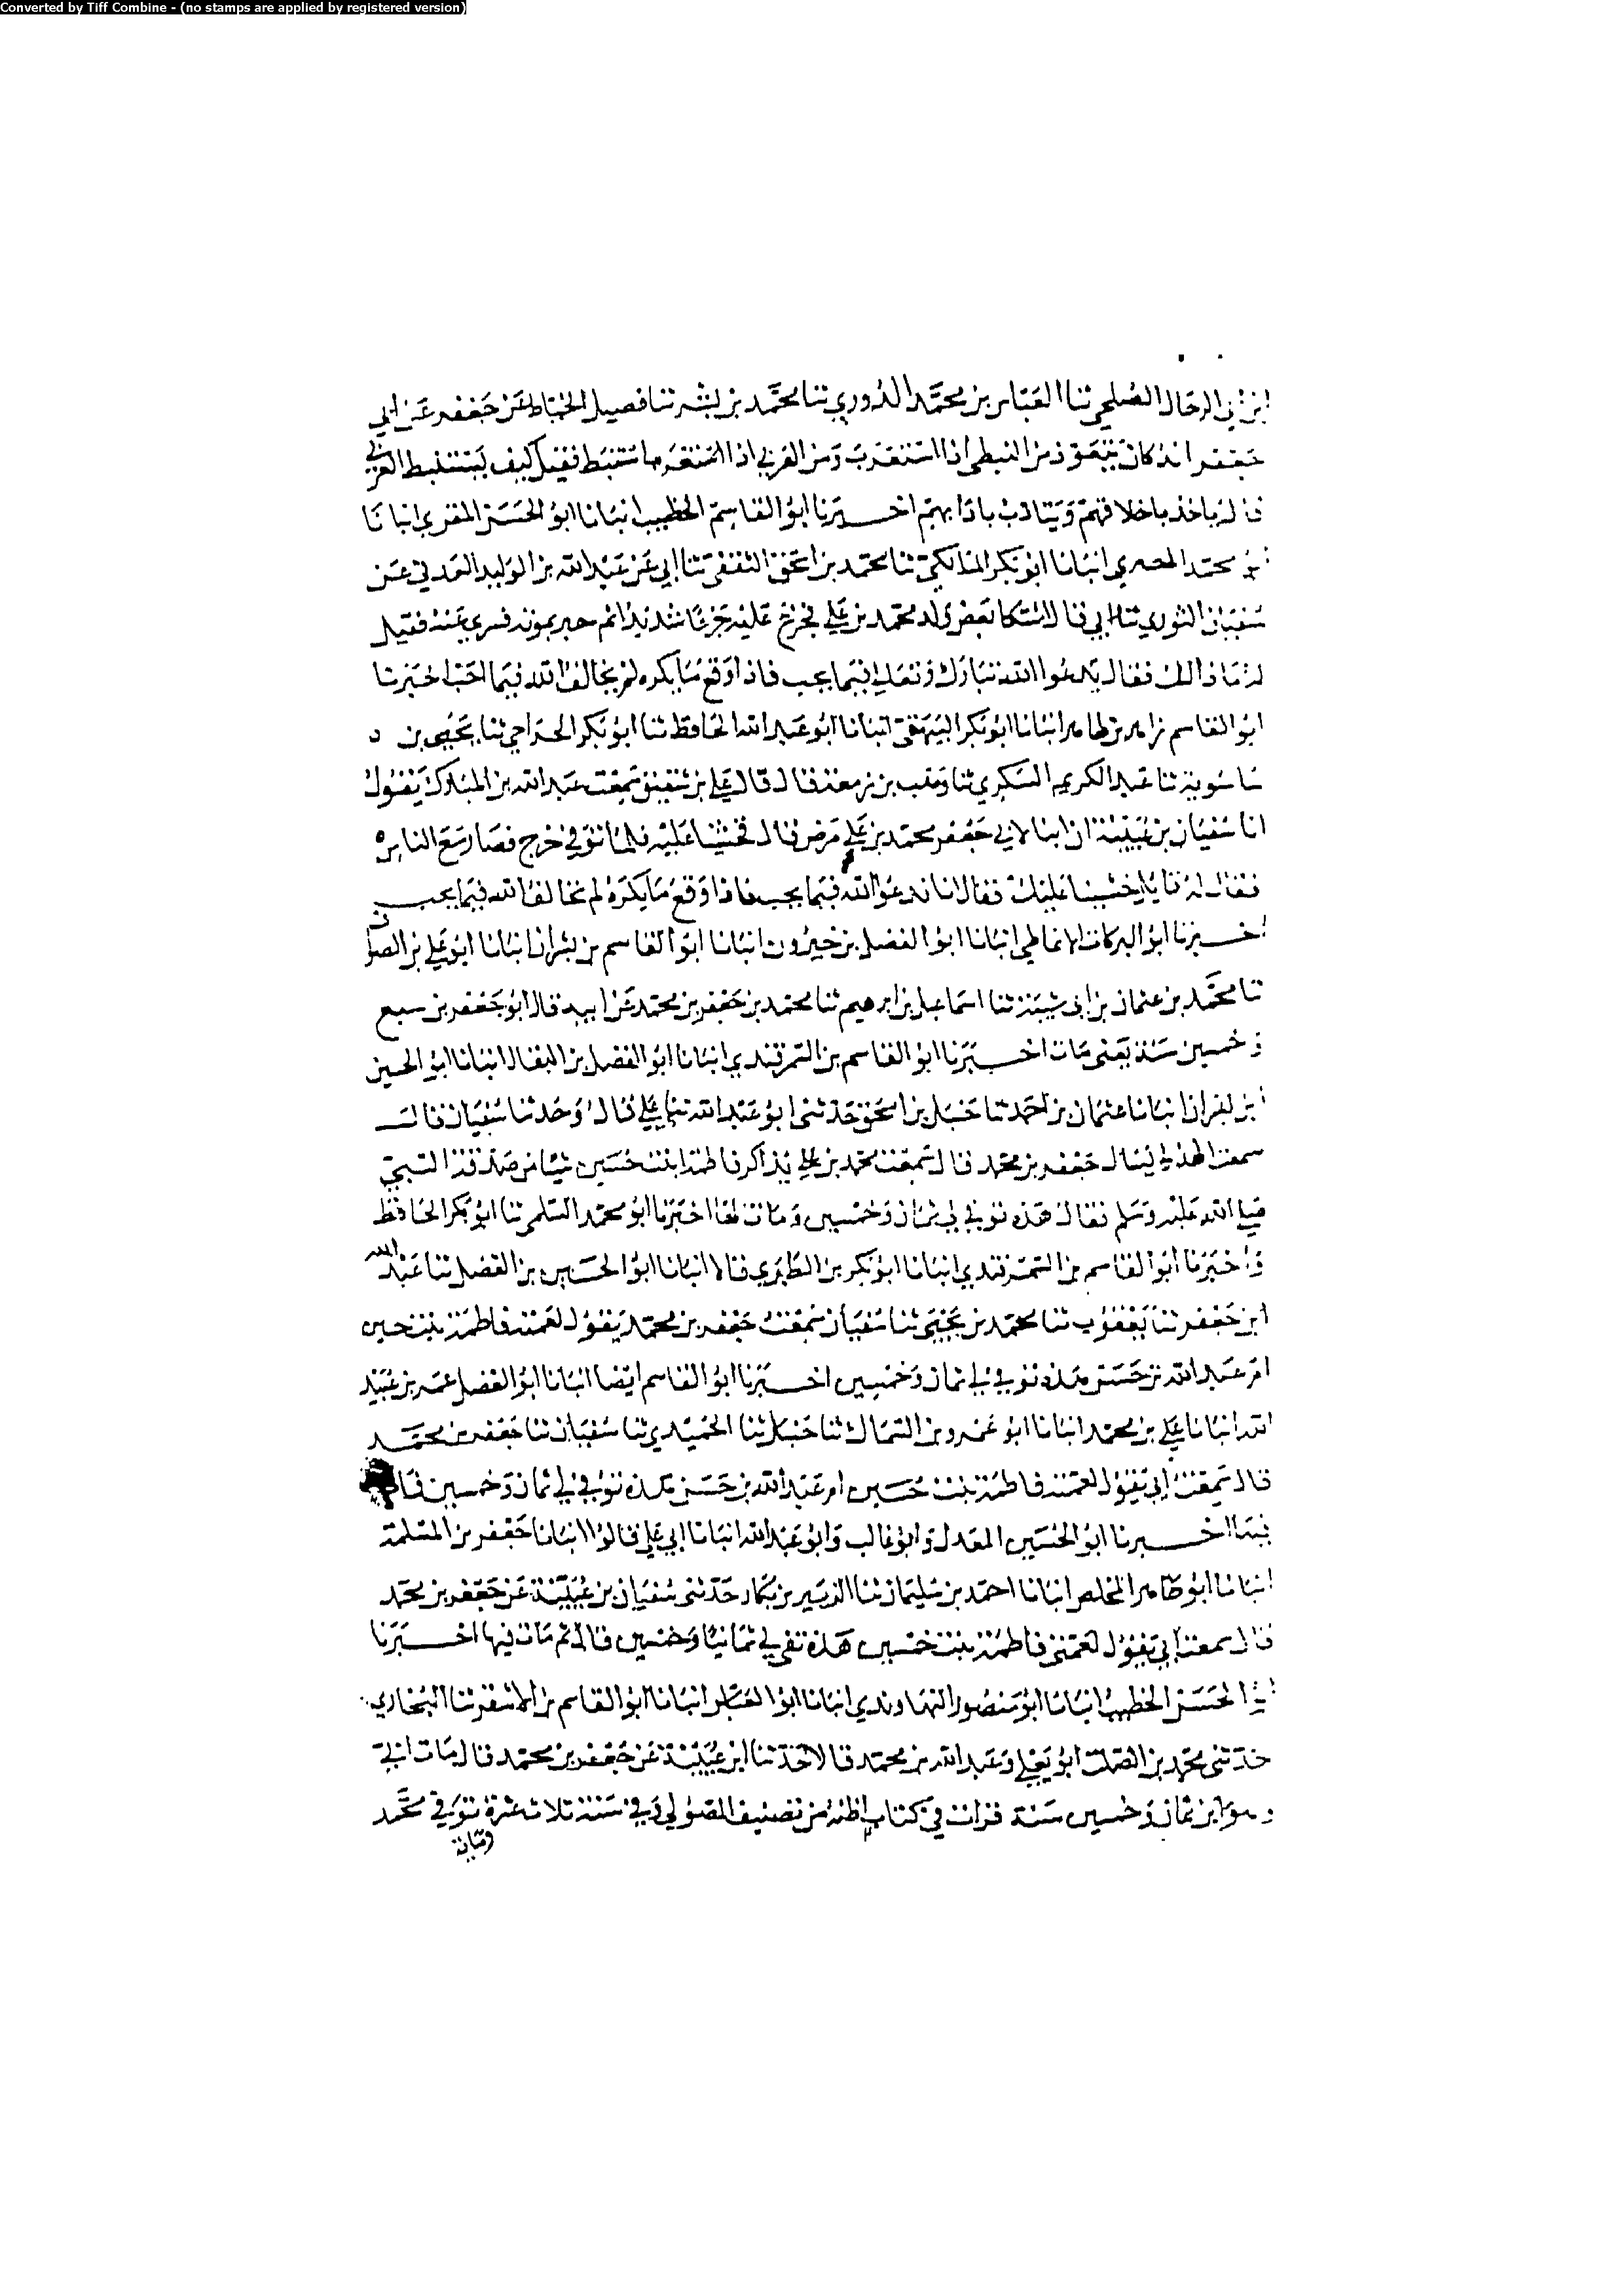 Converted by Tiff Combine - (no stamps are applied by registered version)
ابن ابي الرجال الصلحي ثنا العباس بن محمد الدوري ثنا محمد بن بشر ثنا فضيل الخياط عن جعفر عن ابي
جعفر انه كان يتعوذ من النبطي اذا استعرب ومن العربي اذا استنبط فقيل كيف يستنبط العربي
قال ياخذ باخلاقهم ويتادب بادابهم اخبرنا ابو القاسم الخطيب انبانا ابو الحسن المقرئ انبانا
ابو محمد المصري انبانا ابو بكر المالكي ثنا محمد بن اسحق الثقفي ثنا ابي عن عبد الله بن الوليد العدني عن
سفيان الثوري ثنا ابي قال اشتكا بعض ولد محمد بن علي فجزع عليه جزعا شديدا ثم خبر بموته فسري عنه فقيل
له ما ذالك فقال ندعوا الله تبارك وتعالى فيما يحب فاذا وقع ما يكره لم نخالف الله فيما احب اخبرنا
ابو القاسم زاهر بن طاهر انبانا ابو بكر البيهقي انبانا ابو عبد الله الحافظ ثنا ابو بكر الجراحي ثنا يحيى بن
ساسوية ثنا عبد الكريم السكري ثنا وهب بن زمعة قال قال علي بن شقيق سمعت عبد الله بن المبارك يقول
انا سفيان بن عيينة ان ابنا لابي جعفر محمد بن علي مرض قال فخشينا عليه فلما توفي خرج فصار مع الناس
فقال له قايل خشينا عليك فقال انا ندعوا الله فيما يحب فاذا وقع ما يكره لم نخالف الله فيما يحب
اخبرنا ابو البركات الانماطي انبانا ابو الفضل بن خيرون انبانا ابو القاسم بن بشران انبانا ابو علي بن الصواف
ثنا محمد بن عثمان بن ابي شيبة ثنا اسماعيل بن ابرهيم ثنا محمد بن جعفر بن محمد عن ابيه قال ابو جعفر بن سبع
وخمسين سنة يعني مات اخبرنا ابو القاسم بن السمرقندي انبانا ابو الفضل بن البقال انبانا ابو الحسين
ابن بشران انبانا عثمان بن احمد ثنا حنبل بن اسحق حدثني ابو عبد الله ثنا علي قال وحدثنا سفيان قال
سمعت الهذلي يسال جعفر بن محمد قال سمعت محمد بن علي يذاكر فاطمة ابنت حسين شيئا من صدقة النبي
صلى الله عليه وسلم فقال هذه توفي لي ثمان وخمسين ومات لها اخبرنا ابو محمد السلمي ثنا ابو بكر الحافظ
واخبرنا ابو القاسم بن السمرقندي انبانا ابو بكر بن الطبري قالا انبانا ابو الحسين بن الفضل ثنا عبد الله
ابن جعفر ثنا يعقوب ثنا محمد بن يحيى ثنا سفيان سمعت جعفر بن محمد يقول لعمته فاطمة بنت حسين
ام عبد الله بن حسن هذه توفي لي ثمان وخمسين اخبرنا ابو القاسم ايضا انبانا ابو الفضل عمر بن عبيد
الله انبانا علي بن محمد انبانا ابو عمرو بن السماك ثنا حنبل ثنا الحميدي ثنا سفيان ثنا جعفر بن محمد
قال سمعت ابي يقول لعمته فاطمة بنت حسين ام عبد الله بن حسن هذه توفي لي ثمان وخمسين
فيها اخبرنا ابو الحسين المعدل وابو غالب وابو عبد الله انبانا ابي علي قالوا انبانا جعفر بن المسلمة
انبانا ابو طاهر المخلص انبانا احمد بن سليمان ثنا الزبير بن بكار حدثني سفيان بن عيينة عن جعفر بن محمد
قال سمعت ابي يقول لعمته فاطمة بنت حسين هذه تفي لي ثمانيا وخمسين قال ثم مات فيها اخبرنا
ابو الحسن الخطيب انبانا ابو منصور النهاوندي انبانا ابو العباس انبانا ابو القاسم بن الاشقر ثنا البخاري
حدثني محمد بن الصلت ابو يعلى وعبد الله بن محمد قالا حدثنا ابن عيينة عن جعفر بن محمد قال مات ابي
وهو ابن ثمان وخمسين سنة قرات في كتاب اظنه من تصنيف الصولي وفي سنة ثلاث عشرة توفي محمد
ومائة